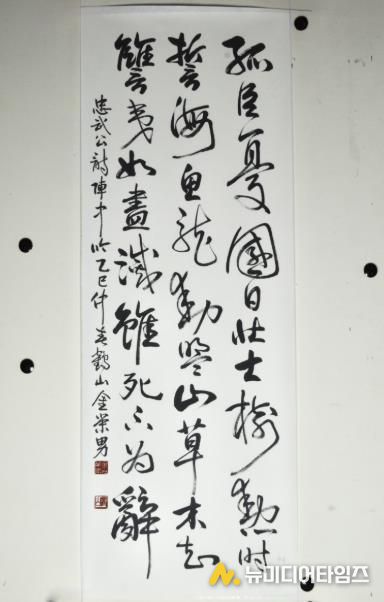 孤臣憂國日壯士樹勳時
誓海魚龍動盟山草木知
讐夷如盡滅雖死不為辭
忠武公詩陣中吟乙巳仲春鶴山金榮男
뉴미디어타임즈